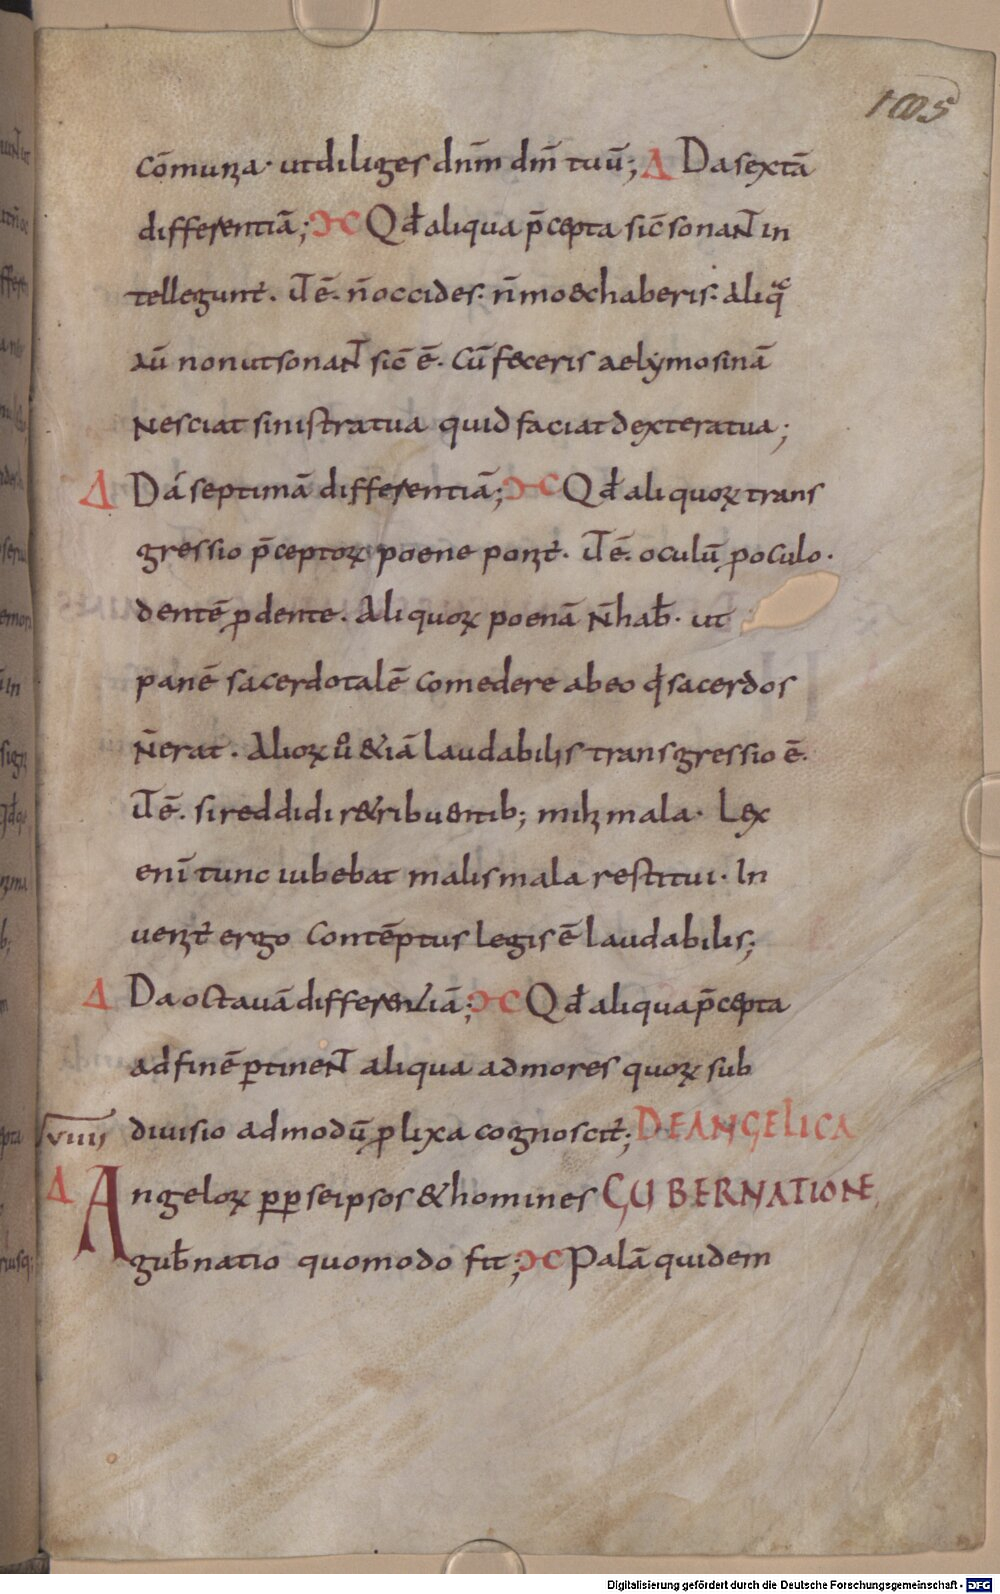 105
cōmunia· ut diliges dn̄m dm̄ tuū; Δ Da sextā
differentiā; ϽC Qđ aliqua p̄cepta sic̄ sonant in
tellegunt̄. Itē. n̄ occides· n̄ mo&chaberis· aliq̄
aū non ut sonant sic̄ ē. Cū feceris aelymosinā
Nesciat sinistra tua quid faciat dextera tua;
Δ Dá septimā differentiā; ϽC Qđ aliquoꝝ trans
gressio p̄ceptoꝝ poene
dentē ꝓ dente. Aliquoꝝ poenā n̄ hab̄· ut
panē sacerdotalē comedere ab eo q̇ sacerdos
n̄ erat. Alioꝝ ů &iā laudabilis transgressio ē.
Itē. si reddidi r&ribuentib; mihi mala. Lex
enī tunc iubebat malis mala restitui. In
ergo contēptus legis ē laudabilis;
Δ Da octauā differentiā; ϽC Qđ aliqua p̄cepta
ad finē ꝑtinent aliqua ad mores quoꝝ sub
VIIII diuisio ad modū ꝓlixa cognoscit̄; DE ANGELICA
Δ Angeloꝝ ꝑ seipsos & homines GUBERNATIONE
gub̄natio quomodo fit; ϽC Palā quidem
Digitalisierung gefördert durch die Deutsche Forschungsgemeinschaft - DFG